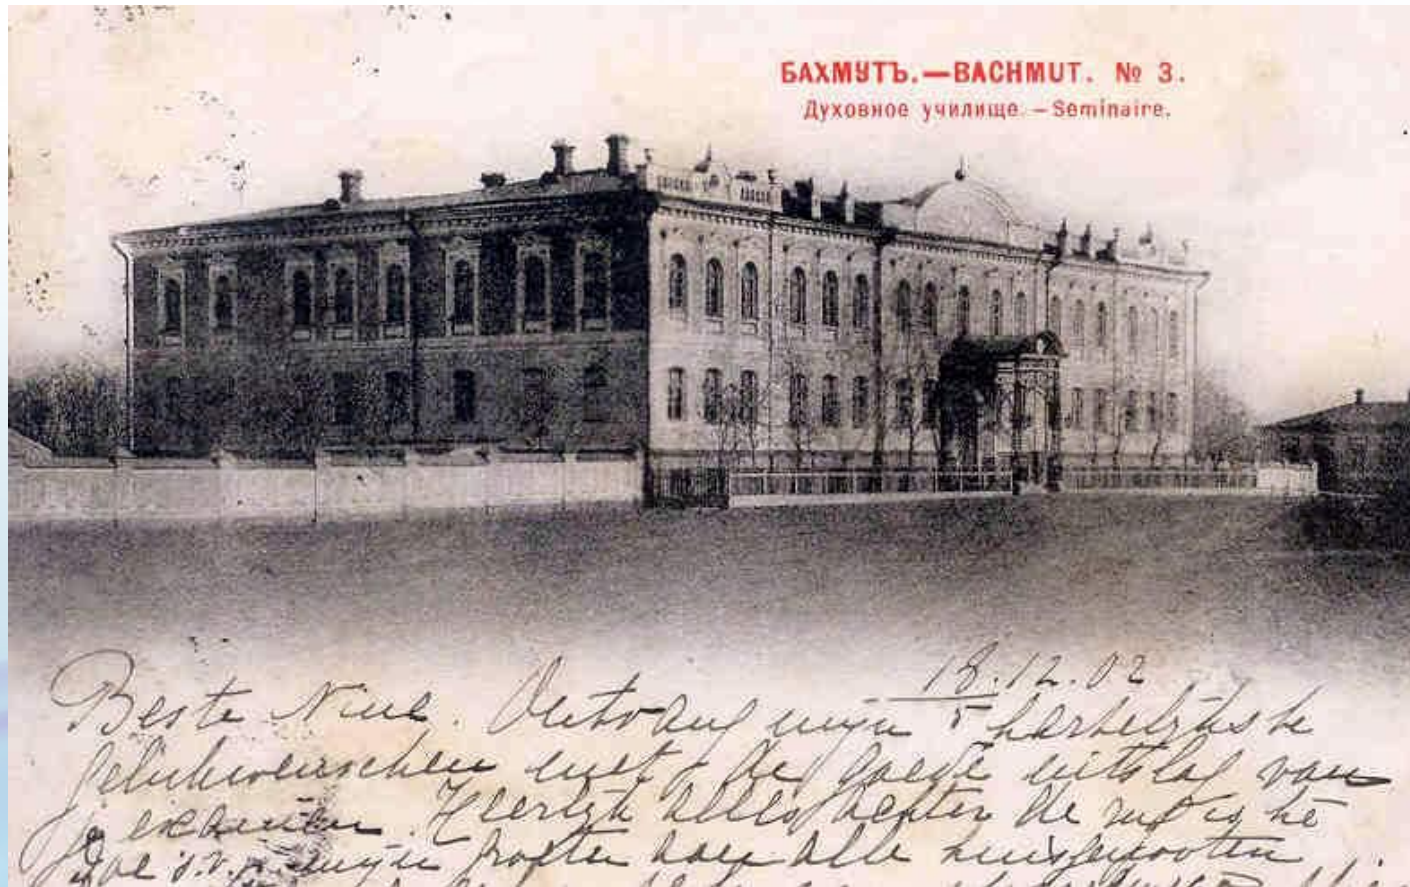 БАХМУТЪ.—BACHMUT. № 3.
Духовное училище.—Seminaire.
18.12.02
5
Beste Nine. Ontvang mijn hartelijkste
gelukwenschen met de goede uitslag van
je examen. Heerlijk alles achter de rug is hè
Doe s.v.p. mijn groeten aan alle huisgenooten